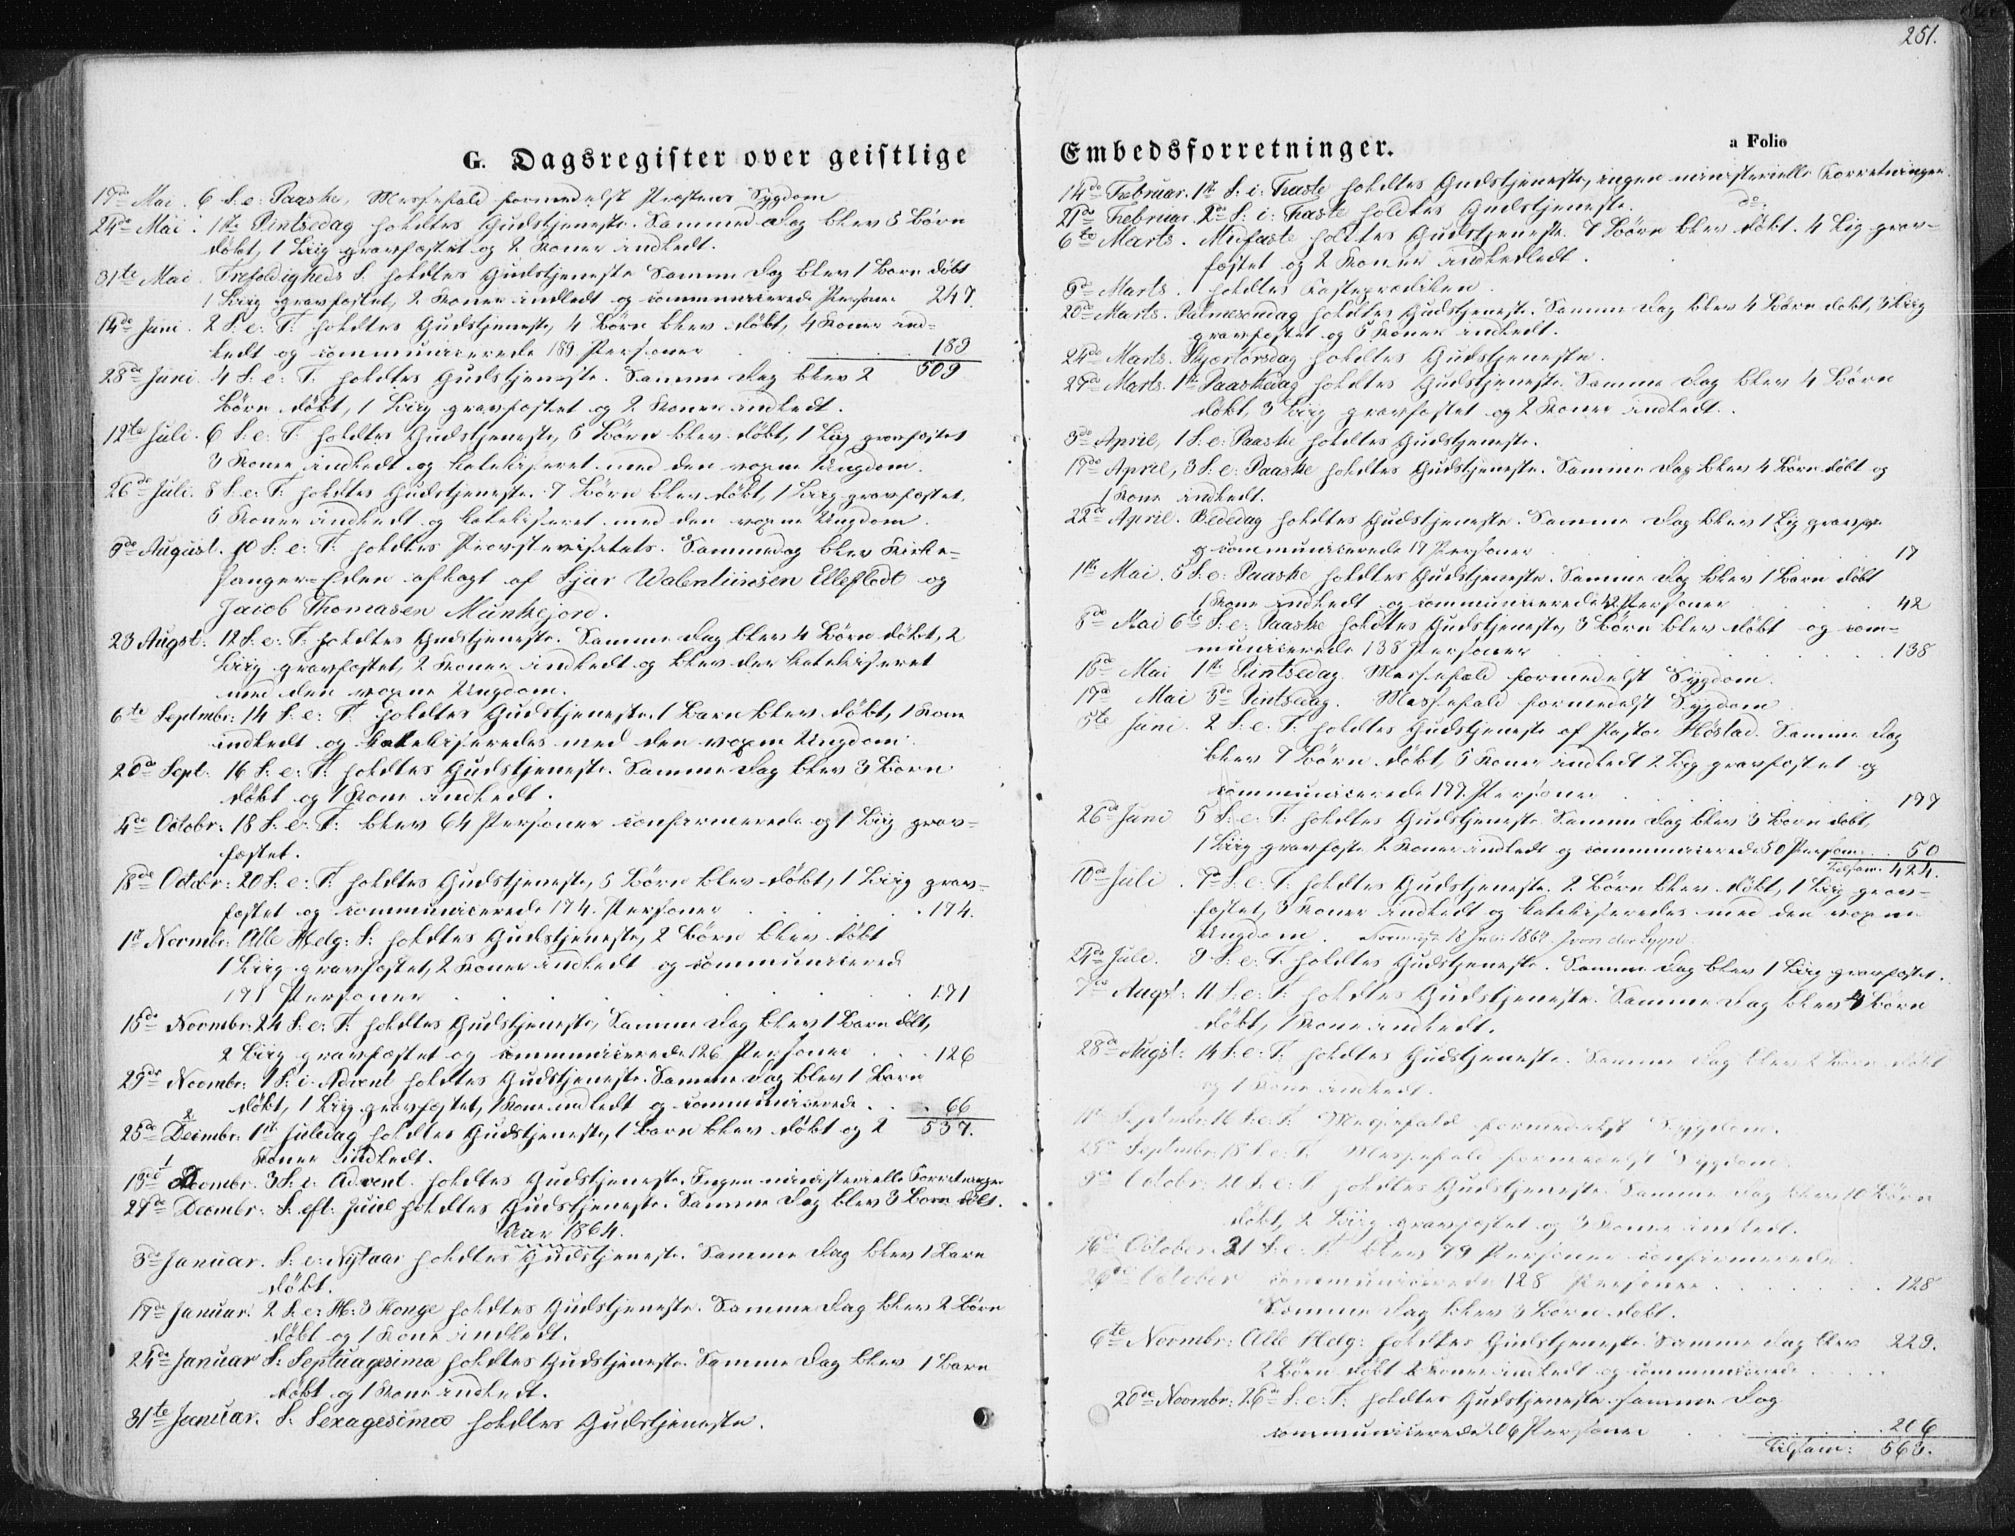 G. Dagsregister over geistlige
17de Mai. 6 S. e: Paaske, Messefald formedelst Præstens Sygdom
24de Mai. 1ste Pintsedag holdtes Gudstjeneste. Sammedag blev 5 Børn
døbt, 1 Liig gravfæstet og 2 Koner indledt.
31te Mai. Trefoldigheds S. holdtes Gudstjeneste Samme Dag blev 1 Barn døbt
1 Liig gravfæstet, 2 Koner indledt og communicerede Person: 247.
14de Juni. 2 S. e: T: holdtes Gudstjeneste, 4 Børn blev døbt, 4 Koner ind-
ledt og communicerede 189 Personer . . . 189
28de Juni. 4 S. e: T: holdtes Gudstjeneste. Samme Dag blev 2 509
Børn døbt, 1 Liig gravfæstet og 2 Koner indledt.
12te Juli. 6 S. e: T: holdtes Gudstjeneste, 5 Børn blev døbt, 1 Liig gravfæstet
3 Koner indledt og katekiseret med den voxne Ungdom.
26de Juli. 8 S. e: T: holdtes Gudstjeneste. 7 Børn blev døbt, 1 Liig gravfæstet,
5 Koner indledt og katekiseret med den voxne Ungdom.
9de August. 10 S. e: T: holdtes Provstevisitats. Sammedag blev Kirke-
sanger-Eden aflagt af Sjar Walentiinsen Elleflodt og
Jacob Thomasen Munkejord.
23 Augst: 12 S. e: T: holdtes Gudstjeneste. Samme Dag blev 4 Børn døbt, 2
Liig gravfæstet, 2 Koner indledt og blev der katekiseret
med den voxne Ungdom.
6te Septmbr: 14 S. e: T: holdtes Gudstjeneste. 1 Barn blev døbt, 1 Kone
indledt og katekiseredes med den voxne Ungdom.
20de Sept: 16 S. e: T: holdtes Gudstjeneste. Samme Dag blev 3 Børn
døbt og 1 Kone indledt.
4de Octobr: 18 S. e: T: blev 64 Personer confirmerede og 1 Liig grav-
fæstet.
18de Octobr: 20 S. e: T: holdtes Gudstjeneste, 5 Børn blev døbt, 1 Liig grav-
fæstet og communicerede 174. Personer . . . 174.
1st Novmbr: Alle Helg: S: holdtes Gudstjeneste, 2 Børn blev døbt
1 Liig gravfæstet, 2 Koner indledt og communicered
171 Personer . . . 171
15de Novmbr: 24 S. e: T: holdtes Gudstjeneste, Samme Dag blev 1 Barn døbt,
2 Liig gravfæstet og communicerede 126 Personer . . . 126
29de Novmbr: 1 S. i: Advent holdtes Gudstjeneste. Samme Dag blev 1 Barn
døbt, 1 Liig gravfæstet, 1 Kone indledt og communicerede . . . 66
25de Decmbr: 1st Juledag holdtes Gudstjeneste, 1 Barn blev døbt og 2 537.
Koner indledt.
13de Decmbr. 3 S. i: Advent. holdtes Gudstjeneste. Ingen ministerielle Forretninger
27de Decmbr: S. eft: Juul holdtes Gudstjeneste. Samme Dag blev 3 Børn døbt.
Aar 1864.
3de Januar. S. e: Nytaar holdtes Gudstjeneste. Samme Dag blev 1 Barn
døbt.
17de Januar. 2 S. e: H: 3 Konge holdtes Gudstjeneste. Samme Dag blev 2 Børn
døbt og 1 Kone indledt.
24de Januar S: Septuagesima holdtes Gudstjeneste. Samme Dag blev 1 Barn
døbt og 1 Kone indledt.
31te Januar. S: Sexagesima holdtes Gudstjeneste.
251.
Embedsforretninger. a Folio
14de Februar. 1st S: i: Faste holdtes Gudstjeneste, ingen ministerielle Forretninger.
21de Februar. 2de S: i: Faste holdtes Gudstjeneste. do.
6te Marts. Midfaste holdtes Gudstjeneste. 7 Børn blev døbt. 4 Lig grav-
fæstet og 2 Koner indledt.
9de Marts. holdtes Fasteprædiken.
20de Marts. Palmesøndag holdtes Gudstjeneste. Samme Dag blev 4 Børn døbt, 3 Liig
gravfæstet og 5 Koner indledt.
24de Marts. Skjærtorsdag holdtes Gudstjeneste.
27de Marts. 1st Paaskedag holdtes Gudstjeneste. Samme Dag blev 4 Børn
døbt, 3 Liig gravfæstet og 2 Koner indledt.
3de April, 1 S. e: Paaske holdtes Gudstjeneste.
17de April, 3 S. e: Paaske holdtes Gudstjeneste. Samme Dag blev 4 Børn døbt og
1 Kone indledt.
22de April. Bededag holdtes Gudstjeneste. Samme Dag blev 1 Lig gravf.
og communicerede 17 Personer . . . 17
1ste Mai. 5 S. e: Paaske holdtes Gudstjeneste. Samme Dag blev 1 Barn døbt
1 Kone indledt og communicerede 42 Personer . . . 42
8de Mai 6te S. e: Paaske holdtes Gudstjeneste, 3 Børn blev døbt og com-
municerede 138 Personer . . . 138
15de Mai 1ste Pintsedag. Messefald formedelst Sygdom.
17de Mai Pintsedag. Messefald formedelst Sygdom.
5te Juni. 2 S. e. T: holdtes Gudstjeneste af Pastor Høstad. Samme Dag
blev 7 Børn døbt, 5 Koner indledt 2 Liig gravfæstet og
communicerede 177. Personer . . . 177
26de Juni 5 S. e. T: holdtes Gudstjeneste. Samme Dag blev 3 Børn døbt,
1 Liig gravfæste 2 Koner indledt og communicerede 50 Person: . . . 50
Tilsam: 424.
10de Juli. 7de S. e: T: holdtes Gudstjeneste. 2 Børn blev døbt, 1 Liig grav-
fæstet, 3 Koner indledt og katekiseredes med den voxne
Ungdom. 18 Juli 1864.
24de Juli. 9 S. e: T: holdtes Gudstjeneste. Samme Dag blev 1 Liig gravfæstet.
7de Augst: 11 S. e: T: holdtes Gudstjeneste. Samme Dag blev 4 Børn
døbt, 1 Kone indledt.
28de Augst: 14 S. e: T: holdtes Gudstjeneste. Samme Dag blev 2 Børn døbt
og 1 Kone indledt.
11te Septmbr: 16 S. e. T. Messefald formedelst Sygdom.
25de Septmbr: 18 S. e. T. Messefald formedelst Sygdom.
9de Octobr: 20 S. e. T. holdtes Gudstjeneste. Samme Dag blev 10 Børn
døbt, 2 Liig gravfæstet og 3 Koner indledt.
16de October. 21 S. e. T. blev 79 Personer confirmerede.
October communicerede 128 Personer . . . 128
Samme Dag blev 3 Børn døbt.
6te Novmbr: Alle Helg: holdtes Gudstjeneste. Samme Dag blev 229.
2 Børn døbt 2 Koner indledt og communicered . . .
20de Novmbr: 26de S. e: T. holdtes Gudstjeneste. samme Dag
communicerede 206 Personer . . . 206
Tilsam: 563.